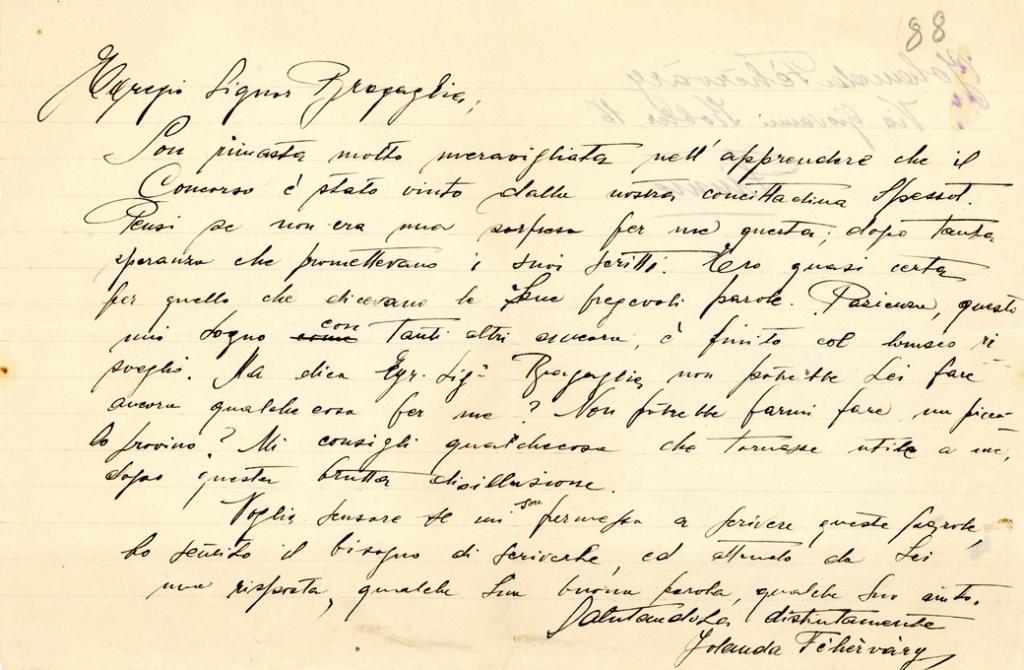 88
Egregio Signor Bragaglia,
Son rimasta molto meravigliata nell'apprendere che il
Concorso è stato vinto dalla nostra concittadina Spessot.
Pensi se non era una sorpresa per me questa; dopo tanta
speranza che promettevano i suoi scritti. Ero quasi certa
per quello che dicevano le Sue pregevoli parole. Pazienza, questo
mio sogno come con tanti altri ancora, è finito col brusco ri
sveglio. Ma dica Egr. Sig. Bragaglia, non potrebbe Lei fare
ancora qualche cosa per me? Non potrebbe farmi fare un picco-
lo provino? Mi consigli qualchecosa che tornasse utile a me,
dopo questa brutta disillusione.
Voglia scusare se mi son permessa a scrivere queste parole,
ho sentito il bisogno di scriverle, ed attendo da Lei
una risposta, qualche Sua buona parola, qualche Suo aiuto.
Salutandola distintamente
Jolanda Féhèrvàry
Jolanda Féhèrvàry
Via Giovanni Kobler 16
Fiume